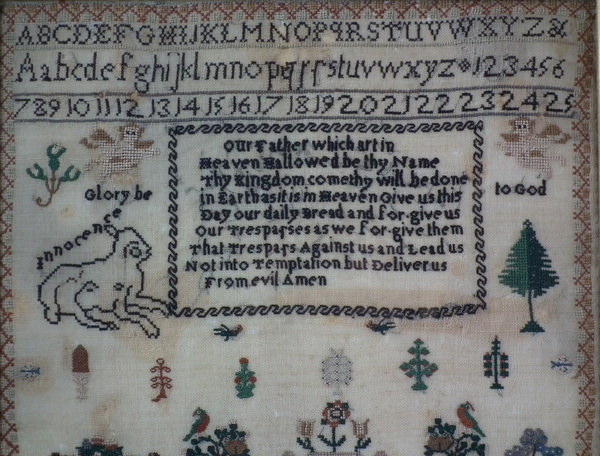 ABCDEFGHIJKLMNOPQRSTUVWXYZ&
Aabcdefghijklmnopqrſstuvwxyz 123456
7 8 9 10 11 12 13 14 15 16 17 18 19 20 21 22 23 24 25
Our Father which art in
Heaven Hallowed be thy Name
Thy Kingdom come thy will be done
in Earth as it is in Heaven Give us this
Day our daily Bread and for-give us
Our Trespaſses as we for-give them
That Trespaſs Against us and Lead us
Not into Temptation but Deliver us
From evil Amen
Glory be
to God
Innocence